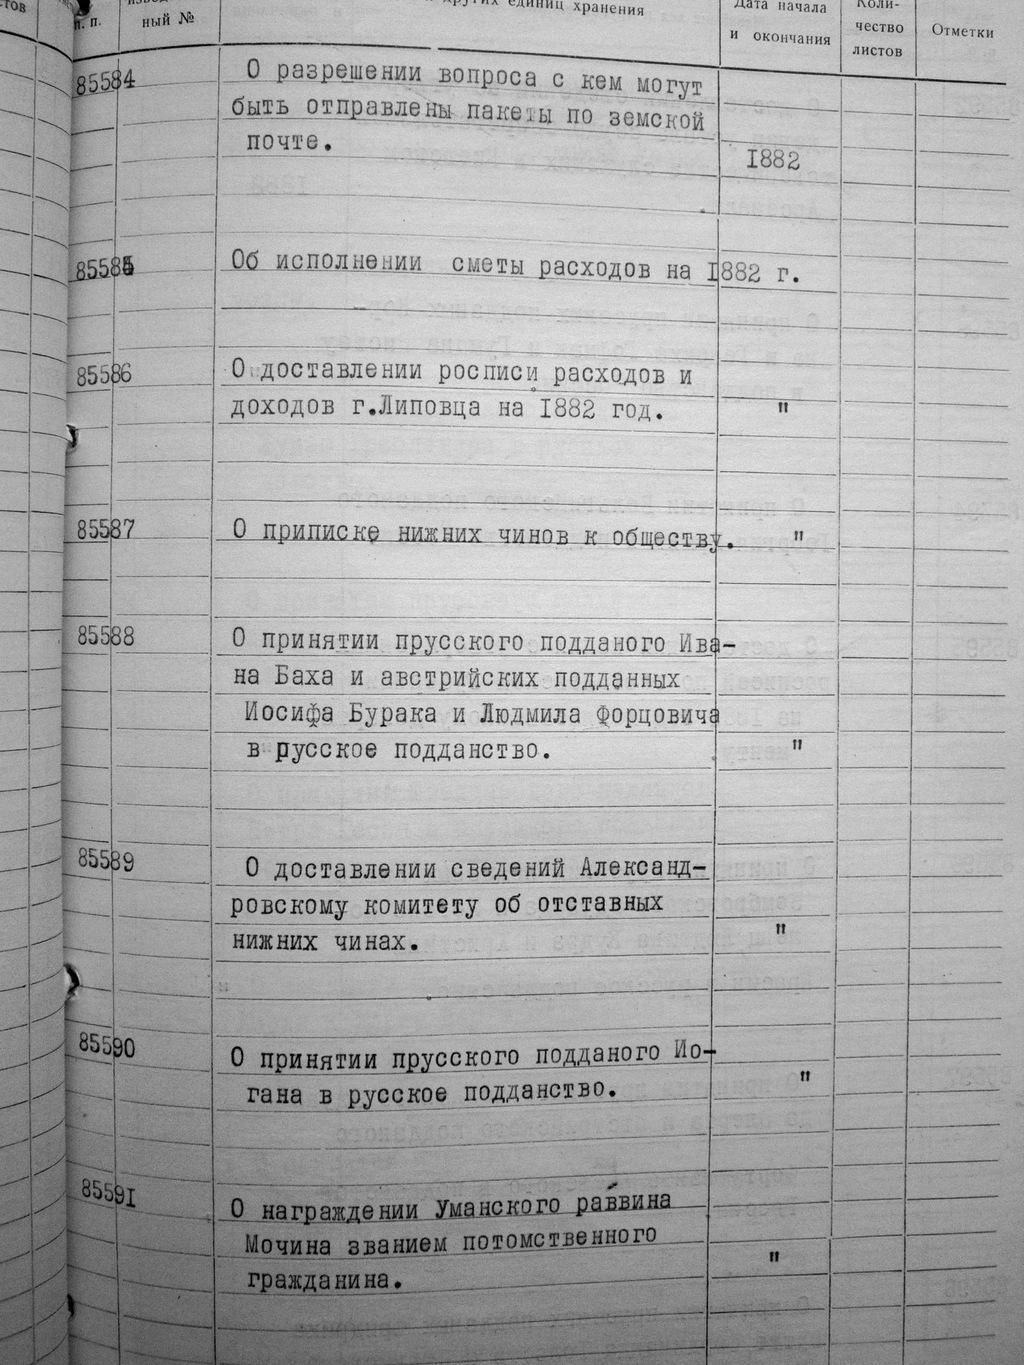 п. п.
ный №
других единиц хранения
Дата начала
и окончания
Коли-
чество
листов
Отметки
85584
О разрешении вопроса с кем могут
быть отправлены пакеты по земской
почте.
1882
85585
Об исполнении сметы расходов на 1882 г.
85586
О доставлении росписи расходов и
доходов г.Липовца на 1882 год. "
85587
О приписке нижних чинов к обществу. "
85588
О принятии прусского подданого Ива-
на Баха и австрийских подданных
Иосифа Бурака и Людмила Форцовича
в русское подданство. "
85589
О доставлении сведений Александ-
ровскому комитету об отставных
нижних чинах. "
85590
О принятии прусского подданого Ио-
гана в русское подданство. "
85591
О награждении Уманского раввина
Мочина званием потомственного
гражданина. "